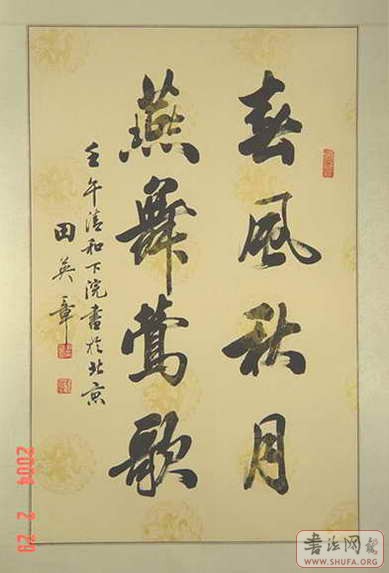 春風秋月
燕舞莺歌
壬午清和下浣書於北京
田英章
2004 2 29
書法网
WWW.SHUFA.ORG